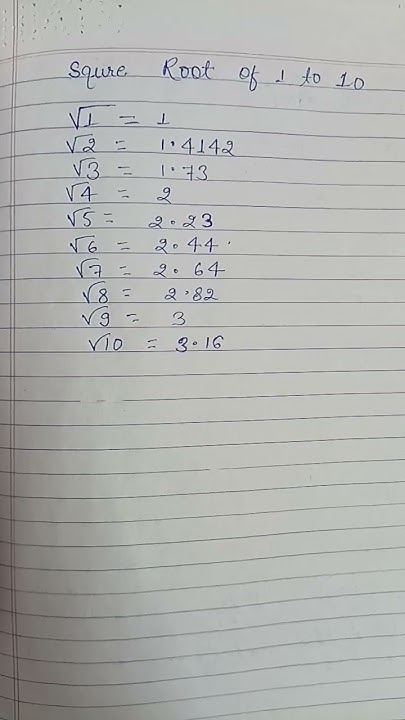 Squre Root of 1 to 10
√1 = 1
√2 = 1.4142
√3 = 1.73
√4 = 2
√5 = 2.23
√6 = 2.44
√7 = 2.64
√8 = 2.82
√9 = 3
√10 = 3.16